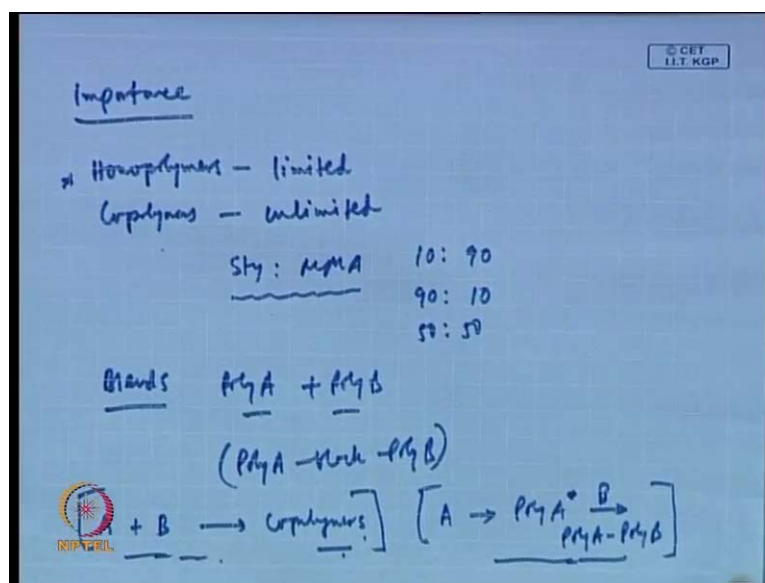 © CET
I.I.T. KGP
Importance
* Homopolymers - limited
Copolymers - unlimited
Sty : MMA 10 : 90
90 : 10
50 : 50
Blends Poly A + Poly B
(Poly A - block - Poly B)
+ B → Copolymers ] [ A → Poly A* B →
Poly A - Poly B ]
NPTEL